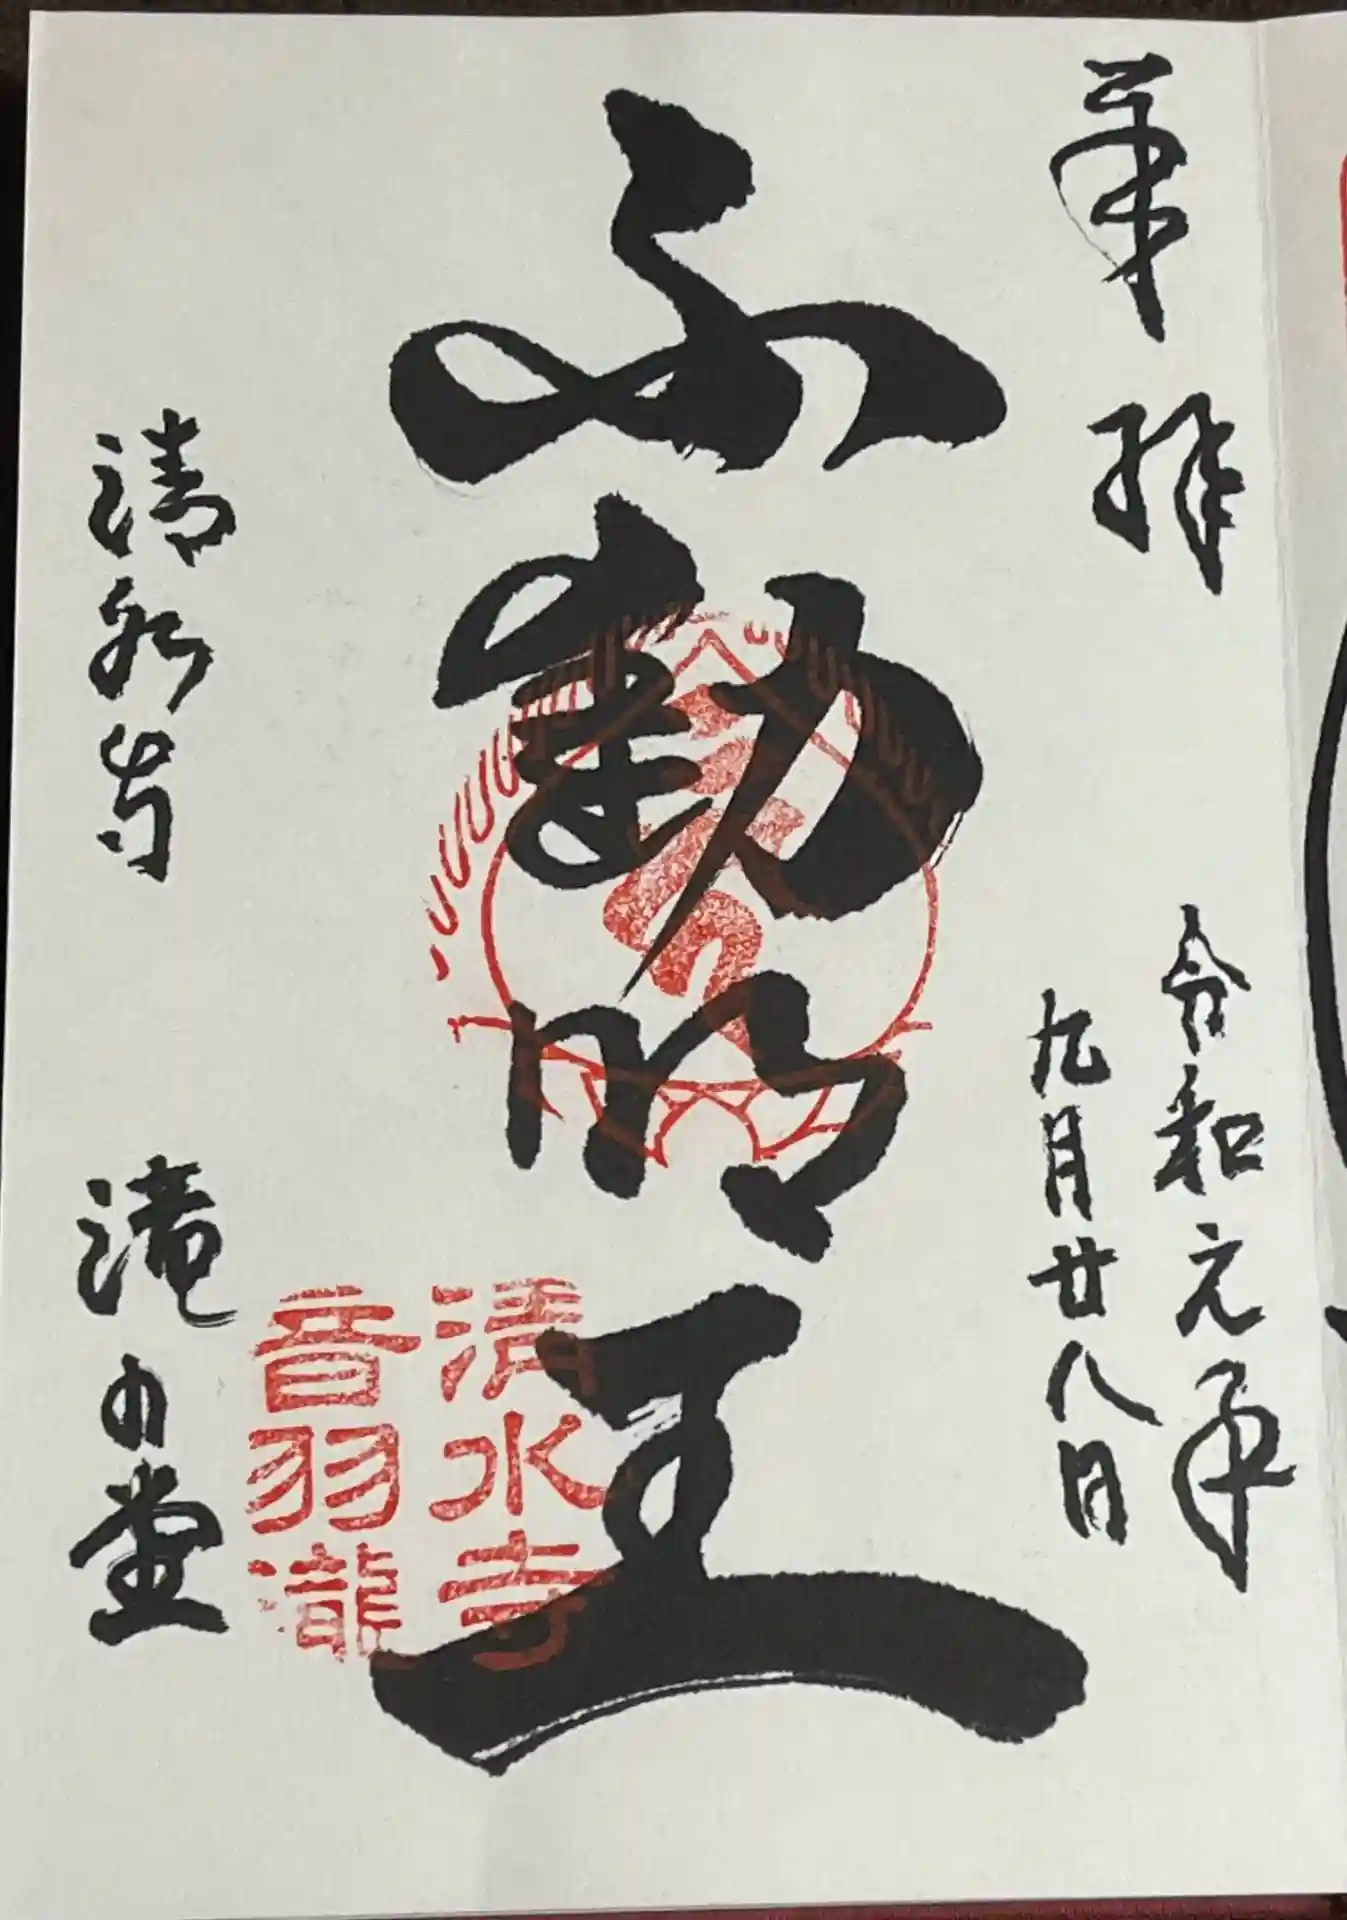 奉拝
令和元年
九月廿八日
不動明王
清水寺
音羽瀧
清水寺 滝の堂